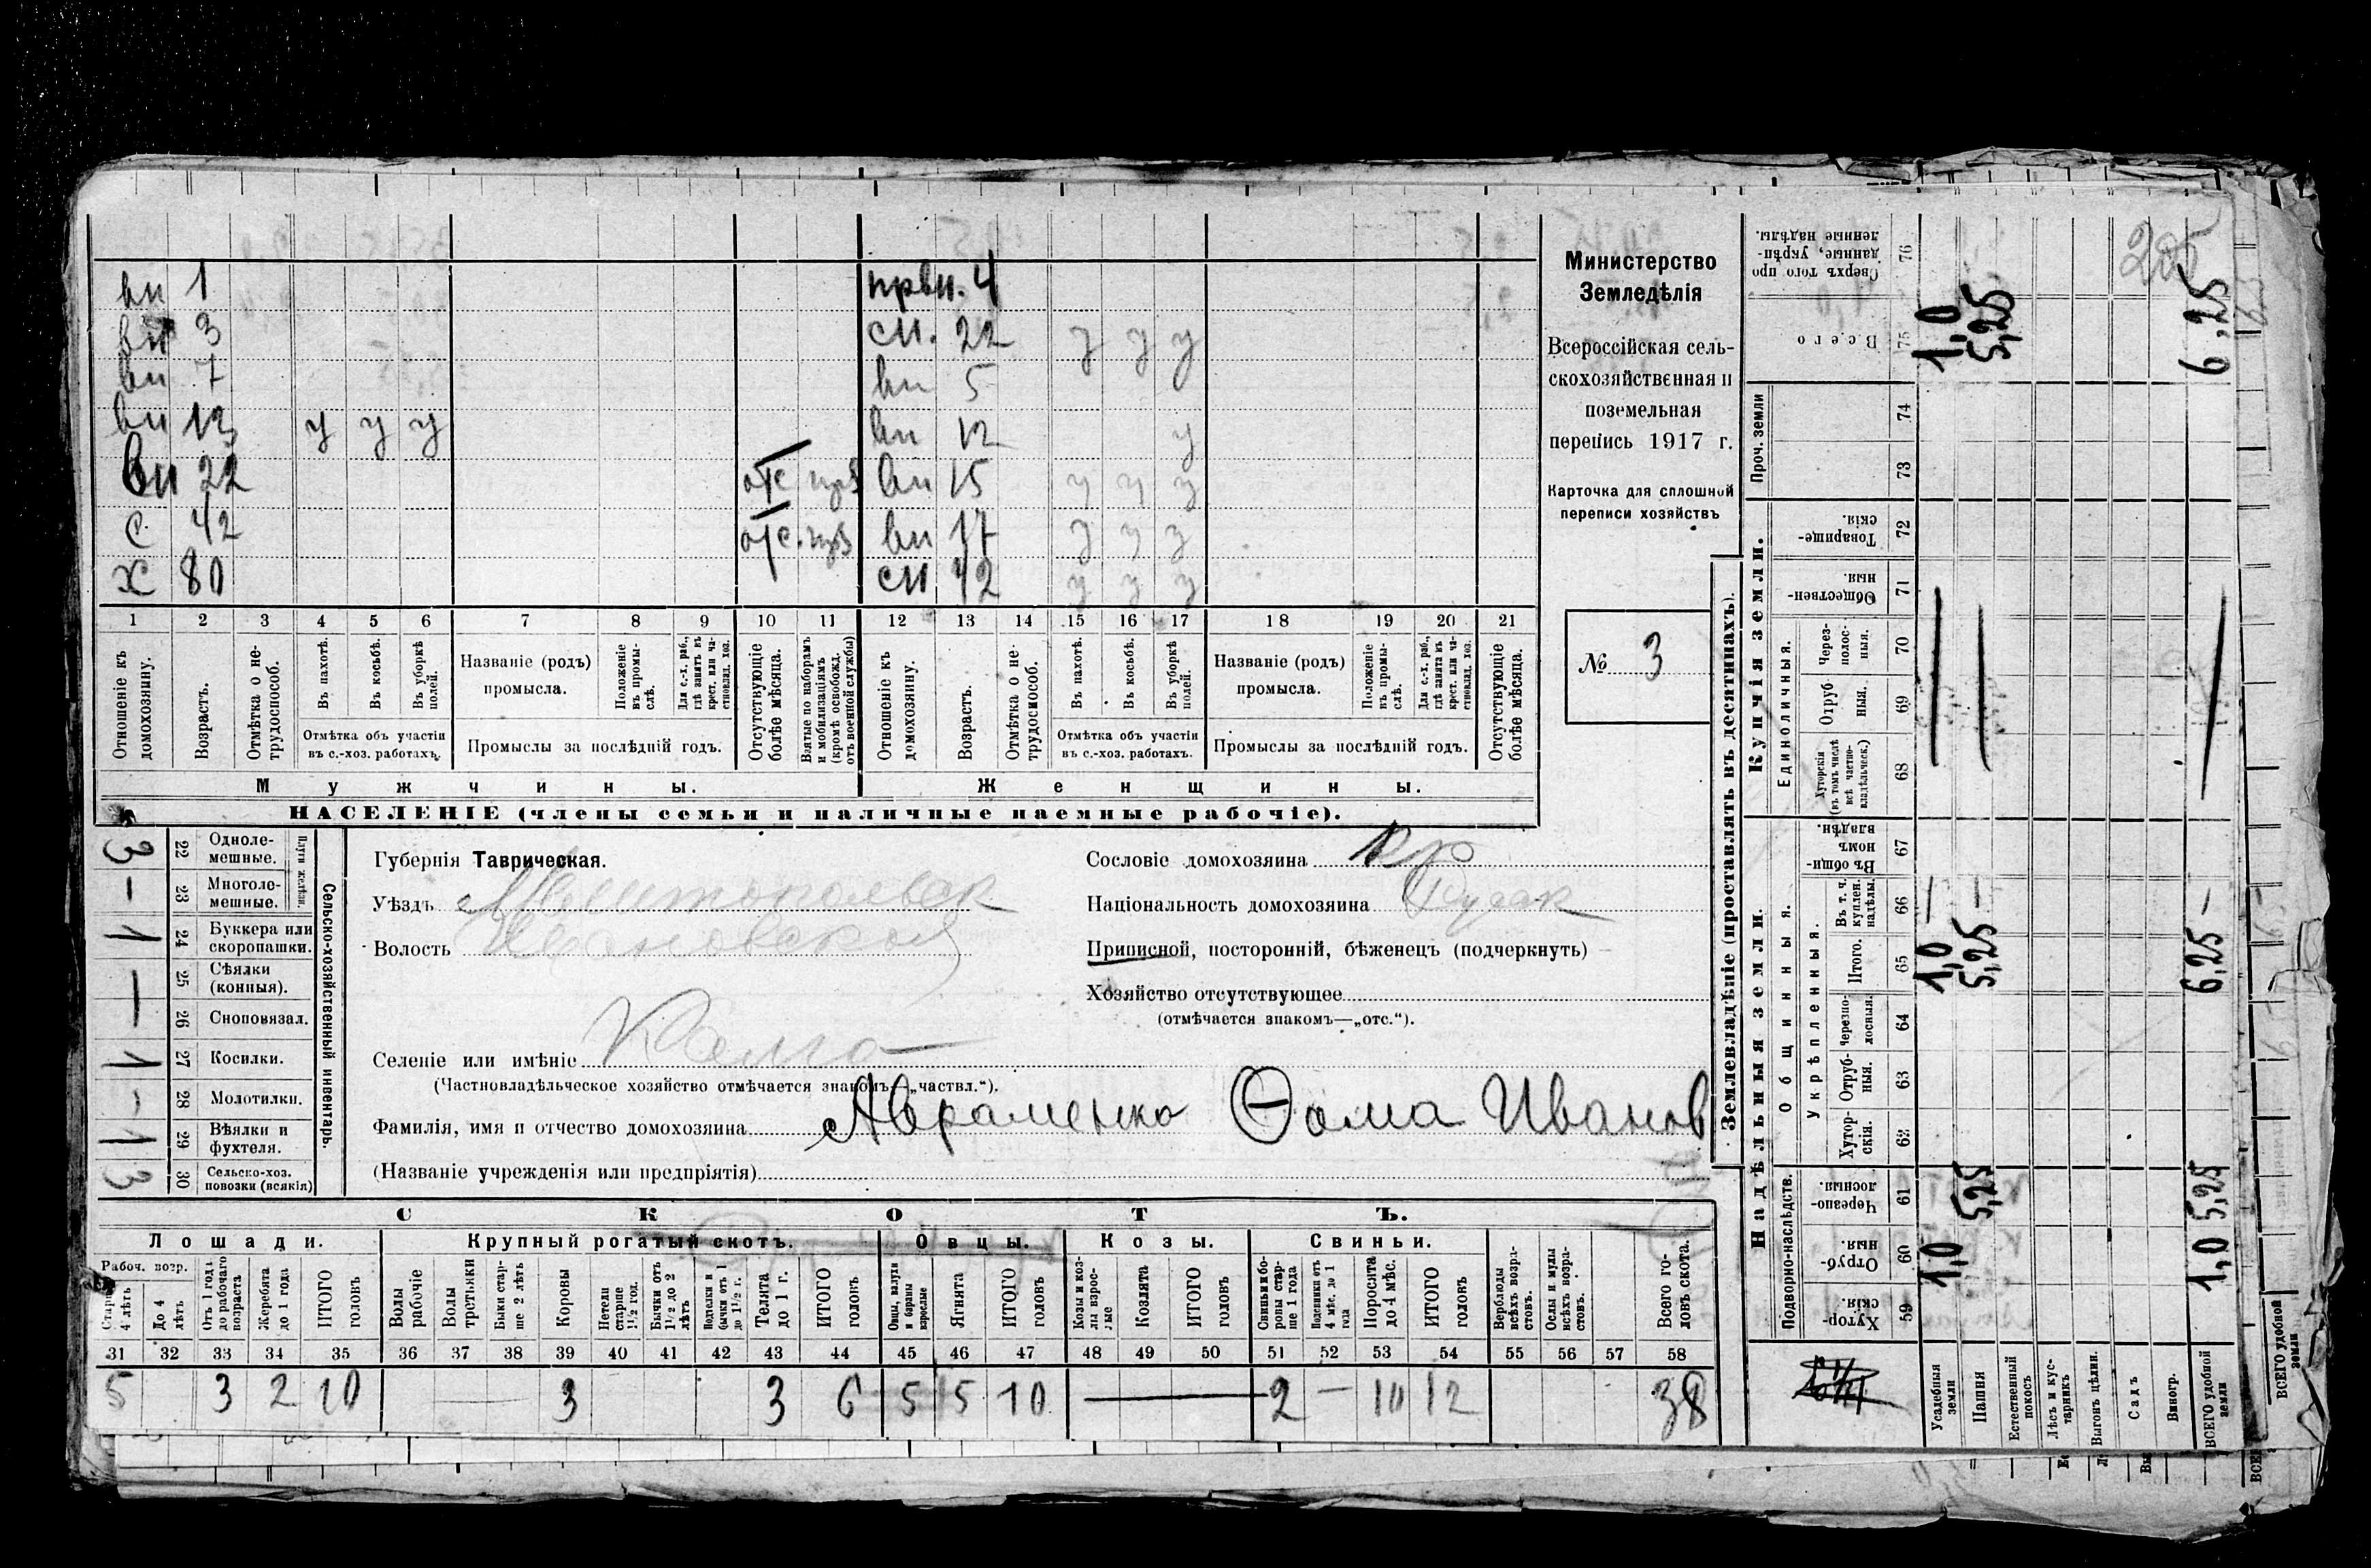 вн 1
вн 3
вн 7
вн 12 у у у
вн 22 отс
с 42 отс.
х 80
првн. 4
сн. 22 у у у
вн 5
вн 12 у
вн 15 у у у
вн 17 у у у
сн 42 у у у
1 2 3 4 5 6 7 8 9 10 11 12 13 14 15 16 17 18 19 20 21
Отношеніе къ домохозяину.
Возрастъ.
Отмѣтка о не-трудоспособ.
Въ пахотѣ.
Въ косьбѣ.
Въ уборкѣ полей.
Отмѣтка объ участіи
въ с.-хоз. работахъ.
Названіе (родъ)
промысла.
Положеніе въ промы-слѣ.
Для с.-х. раб., гдѣ занятъ въ крест. или ча-стновлад. хоз.
Промыслы за послѣдній годъ.
Отсутствующіе болѣе мѣсяца.
Взятые по наборамъ и мобилизаціямъ (кромѣ освобожд. отъ военной службы)
Отношеніе къ домохозяину.
Возрастъ.
Отмѣтка о не-трудоспособ.
Въ пахотѣ.
Въ косьбѣ.
Въ уборкѣ полей.
Отмѣтка объ участіи
въ с.-хоз. работахъ.
Названіе (родъ)
промысла.
Положеніе въ промы-слѣ.
Для с.-х. раб., гдѣ занята въ крест. или ча-стновлад. хоз.
Промыслы за послѣдній годъ.
Отсутствующіе болѣе мѣсяца.
Мужчины.
Женщины.
НАСЕЛЕНІЕ (члены семьи и наличные наемные рабочіе).
Министерство
Земледѣлія
Всероссійская сель-
скохозяйственная и
поземельная
перепись 1917 г.
Карточка для сплошной
переписи хозяйствъ
№ 3
Сельско-хозяйственный инвентарь.
Плуги желѣзн.
3 22 Одноле-мешные.
— 23 Многоле-мешные.
1 24 Буккера или скоропашки.
— 25 Сѣялки (конныя).
26 Сноповязал.
1 27 Косилки.
- 28 Молотилки.
1 29 Вѣялки и фухтеля.
3 30 Сельско-хоз. повозки (всякія)
Губернія Таврическая.
Уѣздъ Мелитопольск
Волость Ивановская
Селеніе или имѣніе
(Частновладѣльческое хозяйство отмѣчается знакомъ—„частвл.“).
Фамилія, имя и отчество домохозяина Авраменко Ѳома Иванов
(Названіе учрежденія или предпріятія)
Сословіе домохозяина кр
Національность домохозяина Русак
Приписной, посторонній, бѣженецъ (подчеркнуть)
Хозяйство отсутствующее
(отмѣчается знакомъ—„отс.“).
СКОТЪ.
Лошади. Крупный рогатый скотъ. Овцы. Козы. Свиньи.
Рабоч. возр.
Старше 4 лѣтъ
До 4 лѣтъ
Отъ 1 года до рабочаго возраста
Жеребята до 1 года
ИТОГО головъ
Волы рабочіе
Волы третьяки
Быки стар-ше 2 лѣтъ
Коровы
Нетели старше 1½ год.
Бычки отъ 1½ до 2 лѣтъ
Телята до 1 г.
ИТОГО головъ
Ягнята
ИТОГО головъ
Козы и коз-лы взрос-лые
Козлята
ИТОГО головъ
Свиньи и бо-ровы стар-ше 1 года
Поросята до 4 мѣс.
ИТОГО головъ
Верблюды всѣхъ возра-стовъ.
Ослы и мулы всѣхъ возра-стовъ.
Всего го-ловъ скота.
31 32 33 34 35 36 37 38 39 40 41 42 43 44 45 46 47 48 49 50 51 52 53 54 55 56 57 58
5 3 2 10 — 3 3 6 5 5 10 — 2 — 10 12 38
Землевладѣніе (проставлять въ десятинахъ).
Купчія земли.
Надѣльныя земли.
Сверхъ того про-данные, укрѣп-ленные надѣлы. 76
Всего 75 1,0 5,25 6,25
205
Проч. земли 74 73
Товарище-скія. 72
Обществен-ныя. 71
Единоличныя.
Черезполос-ныя. 70
Отруб-ныя. 69
Хуторскія (въ томъ числѣ всѣ частно-владѣльческ.) 68
Общинныя.
Въ общин-номъ владѣн. 67
Укрѣпленныя.
Въ т. ч. куплен. надѣлы. 66 — — —
Итого. 65 1,0 5,25 6,25
Черезпо-лосныя. 64
Отруб-ныя. 63
Хутор-скія. 62
Подворно-наслѣдств.
Черезпо-лосныя. 61 5,25 5,25
Отруб-ныя. 60 1,0 1,0
Хутор-скія. 59
Усадебныя земли
Пашня
Естественный покосъ
Лѣсъ и кус-тарникъ
Выгонъ цѣлин.
Садъ
Виногр.
ВСЕГО удобной земли
ВСЕГО удобной земли